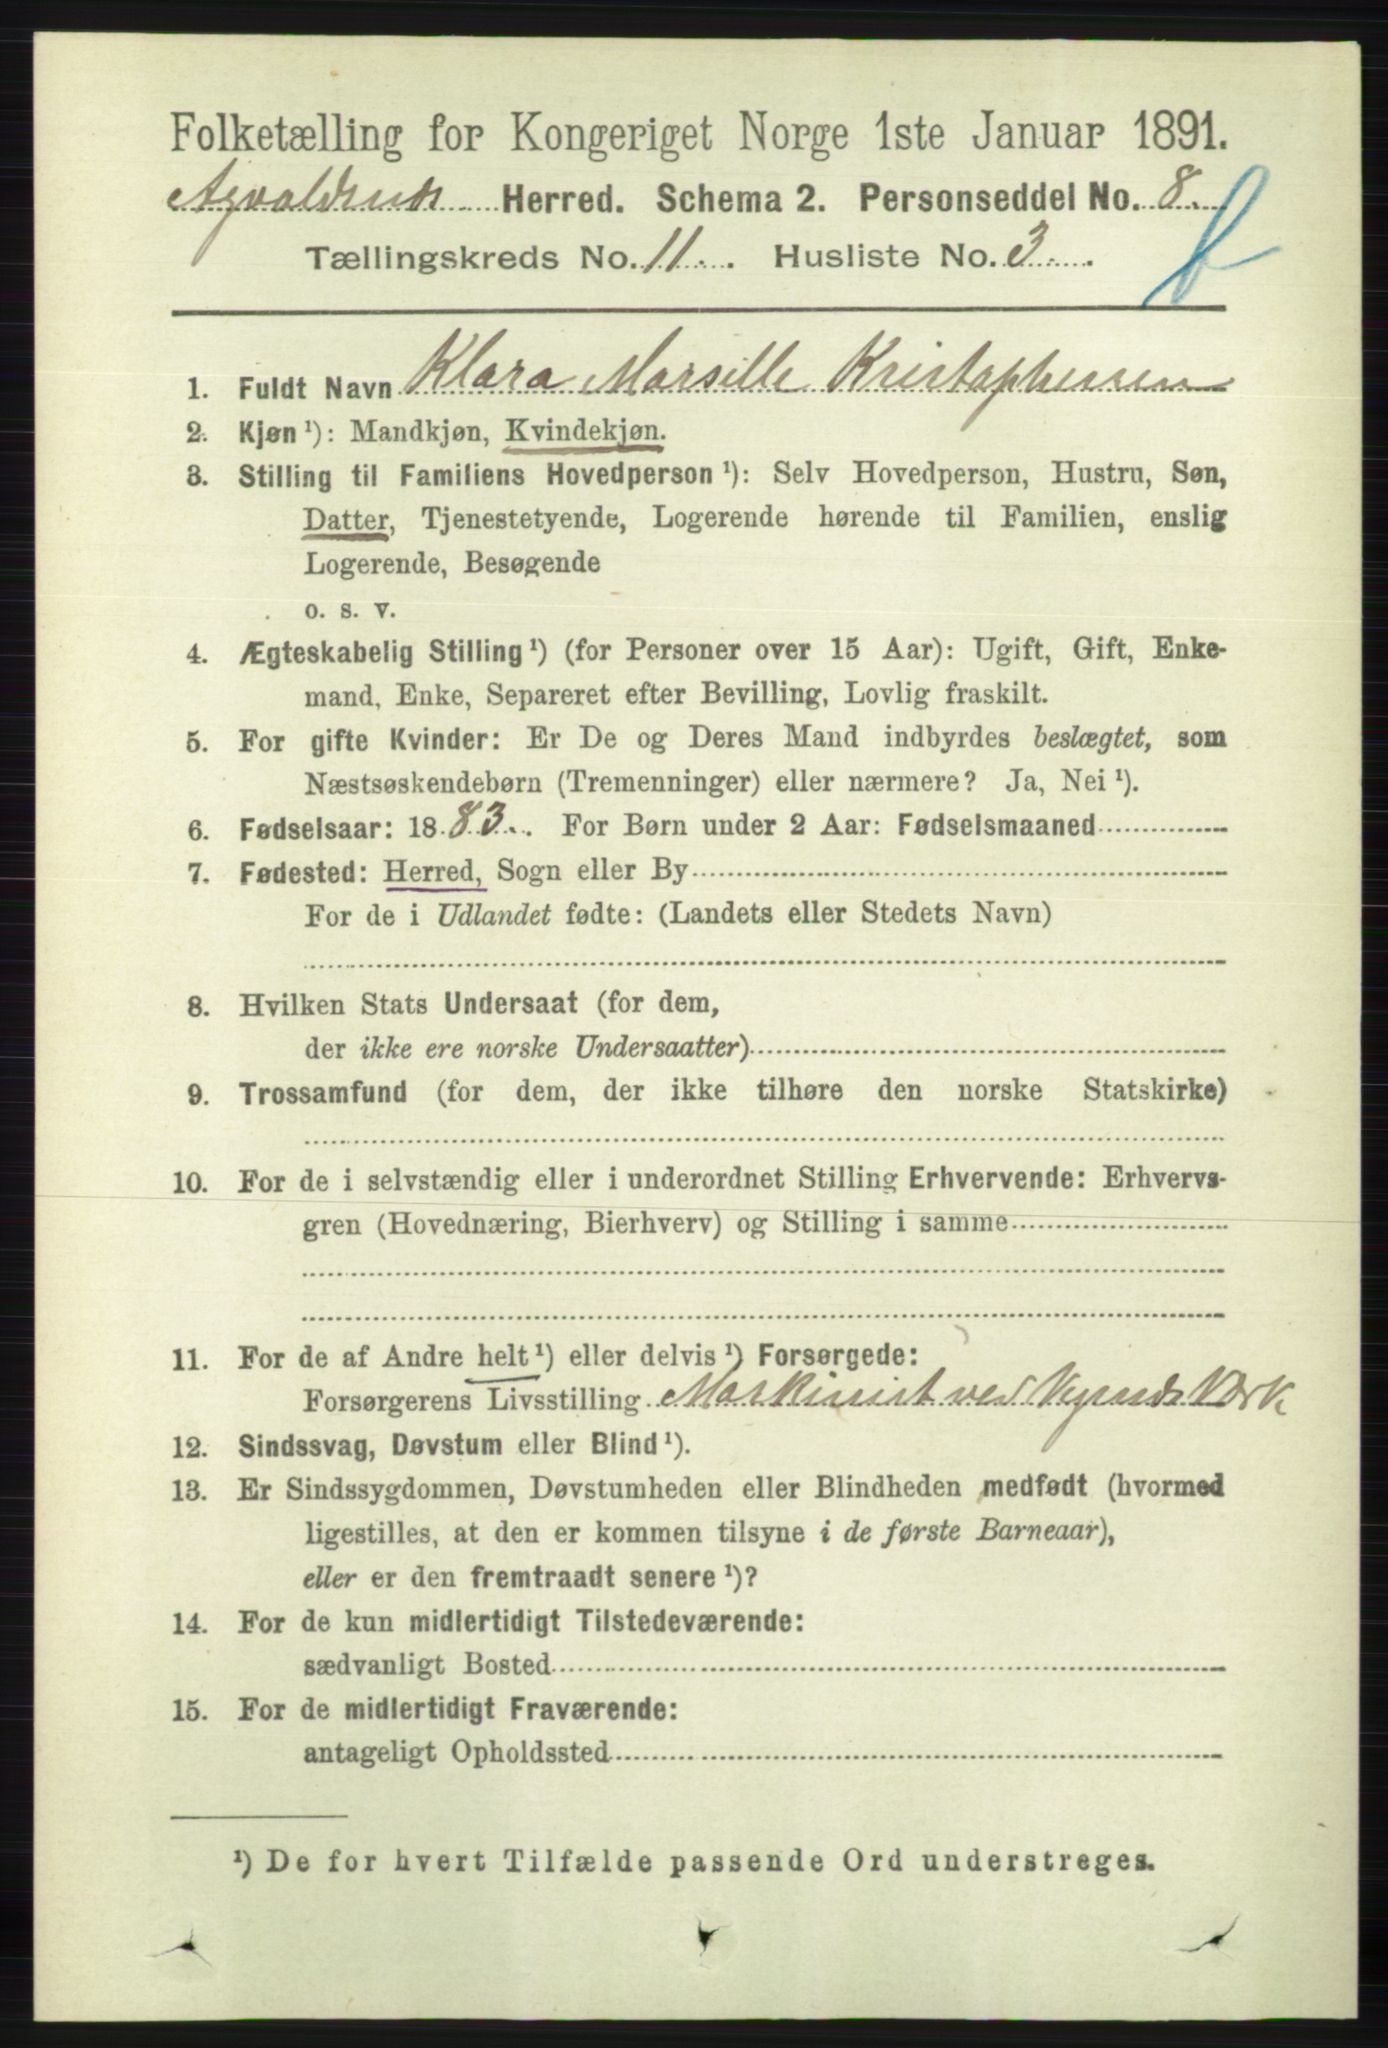 Folketælling for Kongeriget Norge 1ste Januar 1891.
Avaldsnes Herred. Schema 2. Personseddel No. 8.
Tællingskreds No. 11. Husliste No. 3.
1. Fuldt Navn Klara Marsille Kristophersen
2. Kjøn ¹): Mandkjøn, Kvindekjøn.
3. Stilling til Familiens Hovedperson ¹): Selv Hovedperson, Hustru, Søn,
Datter, Tjenestetyende, Logerende hørende til Familien, enslig
Logerende, Besøgende
o. s. v.
4. Ægteskabelig Stilling ¹) (for Personer over 15 Aar): Ugift, Gift, Enke-
mand, Enke, Separeret efter Bevilling, Lovlig fraskilt.
5. For gifte Kvinder: Er De og Deres Mand indbyrdes beslægtet, som
Næstsøskendebørn (Tremenninger) eller nærmere? Ja, Nei ¹).
6. Fødselsaar: 1883. For Børn under 2 Aar: Fødselsmaaned
7. Fødested: Herred, Sogn eller By
For de i Udlandet fødte: (Landets eller Stedets Navn)
8. Hvilken Stats Undersaat (for dem,
der ikke ere norske Undersaatter)
9. Trossamfund (for dem, der ikke tilhøre den norske Statskirke)
10. For de i selvstændig eller i underordnet Stilling Erhvervende: Erhvervs-
gren (Hovednæring, Bierhverv) og Stilling i samme
11. For de af Andre helt ¹) eller delvis ¹) Forsørgede:
Forsørgerens Livsstilling Maskinist ved Vigsnes Værk
12. Sindssvag, Døvstum eller Blind ¹).
13. Er Sindssygdommen, Døvstumheden eller Blindheden medfødt (hvormed
ligestilles, at den er kommen tilsyne i de første Barneaar),
eller er den fremtraadt senere ¹)?
14. For de kun midlertidigt Tilstedeværende:
sædvanligt Bosted
15. For de midlertidigt Fraværende:
antageligt Opholdssted
¹) De for hvert Tilfælde passende Ord understreges.